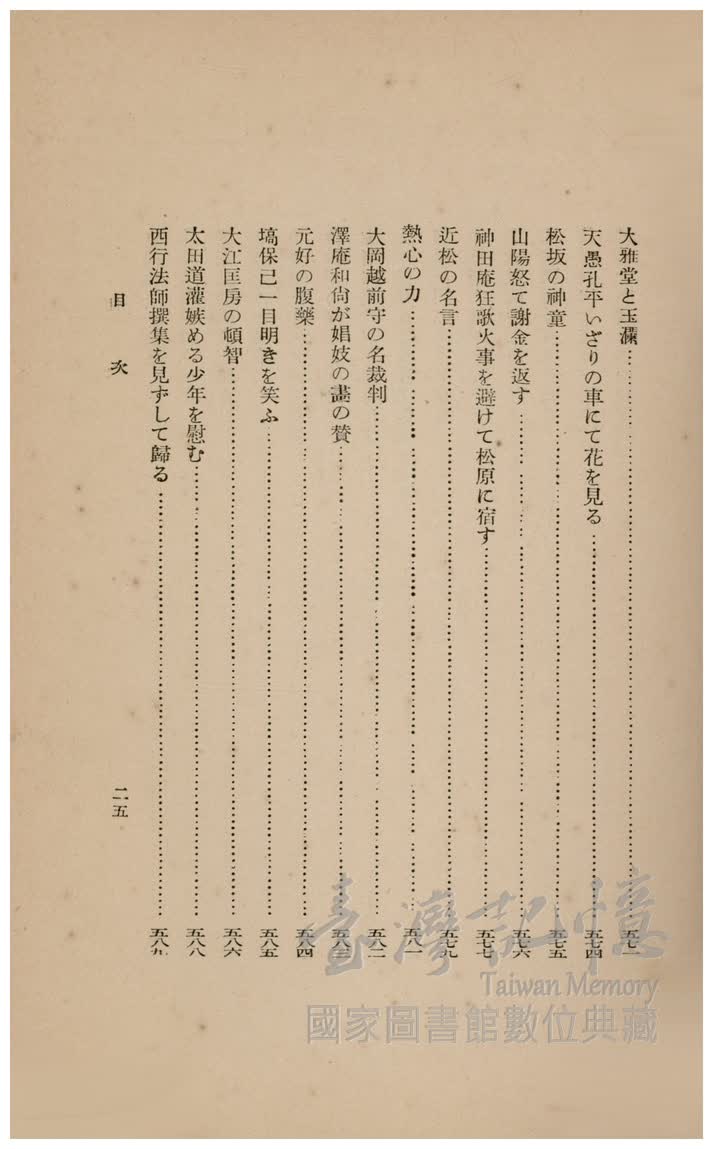 大雅堂と玉瀾……五七一
天愚孔平いざりの車にて花を見る……五七四
松坂の神童……五七五
山陽怒て謝金を返す……五七六
神田庵狂歌火事を避けて松原に宿す……五七七
近松の名言……五七九
熱心の力……五八一
大岡越前守の名裁判……五八二
澤庵和尙が娼妓の畵の賛……五八三
元好の腹藥……五八四
塙保己一目明きを笑ふ……五八五
大江匡房の頓智……五八六
太田道灌嫉める少年を慰む……五八八
西行法師撰集を見ずして歸る……五八九
目次
二五
臺灣記憶
Taiwan Memory
國家圖書館數位典藏